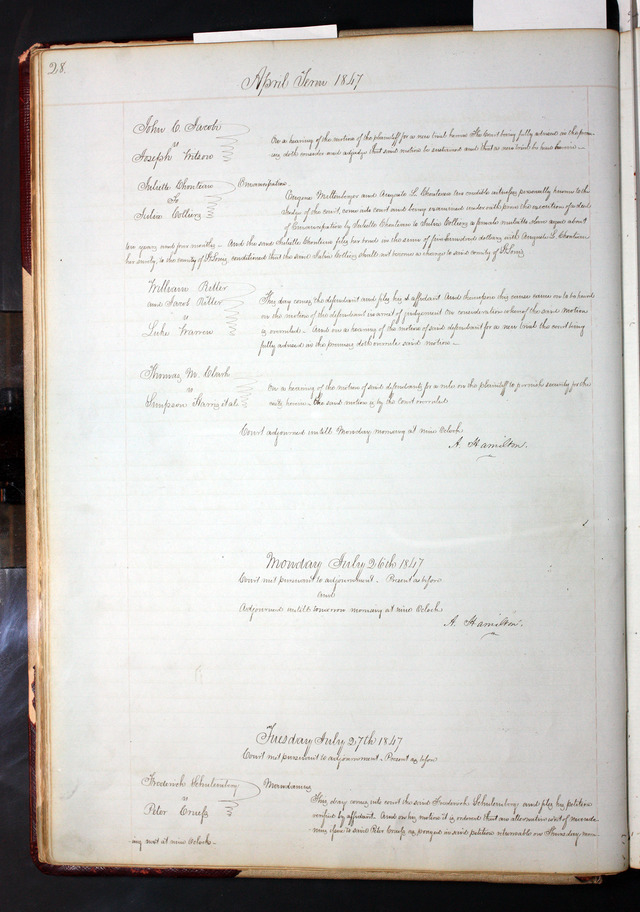 28.
April Term 1847
John C. Jacobi
vs
Joseph Wilson
On a hearing of the motion of the plaintiff for a new trial herein The Court being fully advised in the prem-
ises doth consider and adjudge that said motion be sustained and that a new trial be had herein —
Juliette Chouteau
To
Julia Collins
Emancipation —
Eugene Miltenberger and Auguste L. Chouteau two credible witnesses personally known to the
Judge of the court, come into court and being examined under oath prove the execution of a deed
of Emancipation by Juliette Chouteau to Julia Collins a female mulatto slave aged about
two years and four months — And the said Juliette Chouteau files her bond in the sum of five hundred dollars with Auguste L. Chouteau
her surety, to the county of St. Louis, conditioned that the said Julia Collins shall not become a charge to said county of St. Louis
William Ritter
and Jacob Ritter
vs
Luke Warren
This day comes the defendant and files his affidavit And thereupon this cause came on to be heard
on the motion of the defendant in arrest of judgement On consideration whereof the said motion
is overruled — And on a hearing of the motion of said defendant for a new trial this court being
fully advised in the premises doth overrule said motion —
Thomas M. Clark
vs
Simpson Harris et al
On a hearing of the motion of said defendants for a rule on the plaintiff to furnish security for the
costs herein — the said motion is by the Court overruled
Court adjourned untill Monday morning at nine Oclock
A. Hamilton.
Monday July 26th 1847
Court met pursuant to adjournment — Present as before
And
Adjourned untill tomorrow morning at nine Oclock
A. Hamilton.
Tuesday July 27th 1847
Court met pursuant to adjournment — Present as before
Frederick Schulenburg
vs
Peter
Mandamus
This day comes into court the said Frederick Schulenburg and files his petition
verified by affidavit. And on his motion it is ordered that an alternative writ of manda-
mus issue to said Peter as prayed in said petition returnable on Thursday morn-
ing next at nine Oclock —